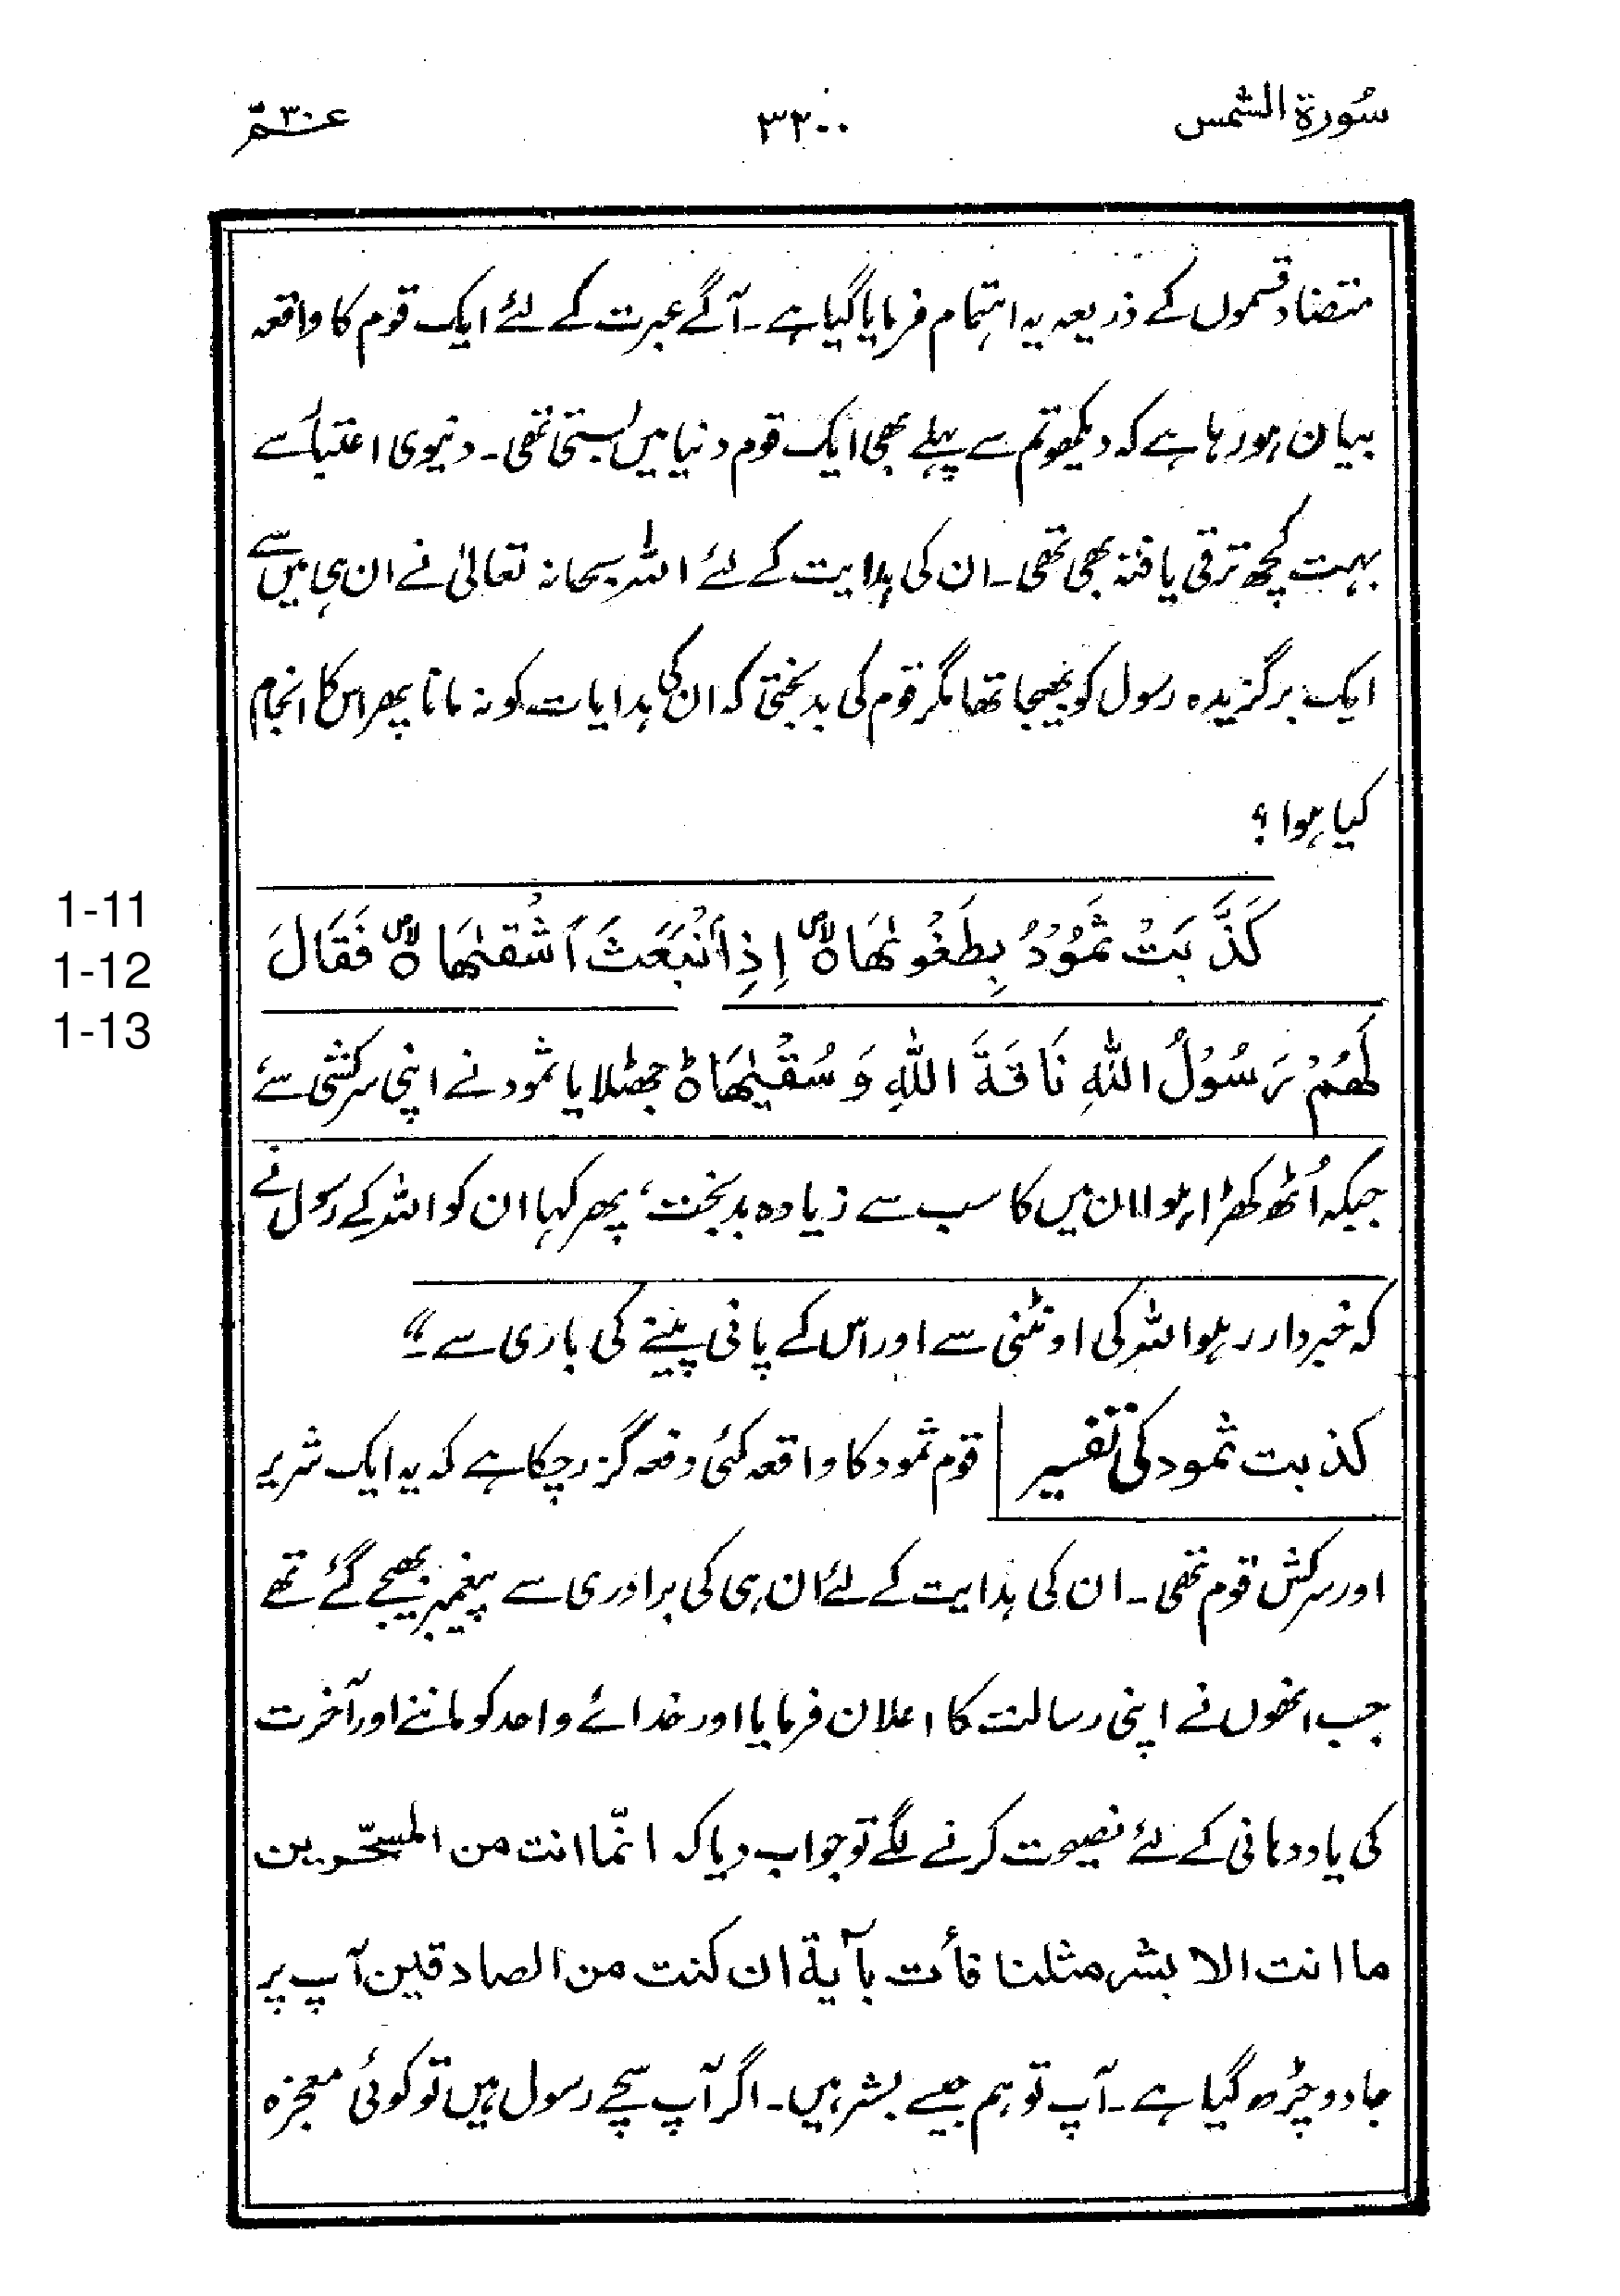 سُورة الشمس
٣٢٠٠
عمّ ٣٠
متضاد قسموں کے ذریعہ یہ اہتمام فرمایا گیا ہے۔ آگے عبرت کے لئے ایک قوم کا واقعہ
بیان ہو رہا ہے کہ دیکھو تم سے پہلے بھی ایک قوم دنیا میں بستی تھی۔ دنیوی اعتبار سے
بہت کچھ ترقی یافتہ بھی تھی۔ ان کی ہدایت کے لئے اللہ سبحانہ تعالیٰ نے ان ہی میں سے
ایک برگزیدہ رسول کو بھیجا تھا مگر قوم کی بدبختی کہ ان کی ہدایات کو نہ مانا پھر اس کا انجام
کیا ہوا؟
1-11
1-12
1-13
كَذَّبَتْ ثَمُوْدُ بِطَغْوٰىهَاۤ ۪ۙ اِذِ انْۢبَعَثَ اَشْقٰىهَا ۪ۙ فَقَالَ
لَهُمْ رَسُوْلُ اللّٰهِ نَاقَةَ اللّٰهِ وَ سُقْيٰهَا ؕ جھٹلایا ثمود نے اپنی سرکشی سے
جبکہ اُٹھ کھڑا ہوا ان میں کا سب سے زیادہ بدبخت، پھر کہا ان کو اللہ کے رسول نے
کہ خبردار رہو اللہ کی اونٹنی سے اور اس کے پانی پینے کی باری سے۔"
کذبت ثمود کی تفسیر | قوم ثمود کا واقعہ کئی دفعہ گزر چکا ہے کہ یہ ایک شریر
اور سرکش قوم تھی۔ ان کی ہدایت کے لئے ان ہی کی برادری سے پیغمبر بھیجے گئے تھے
جب انھوں نے اپنی رسالت کا اعلان فرمایا اور خدائے واحد کو ماننے اور آخرت
کی یاددہانی کے لئے نصیحت کرنے لگے تو جواب دیا کہ انّما انت من المسحّرین
ما انت الا بشر مثلنا فأت بآیة ان کنت من الصادقین آپ پر
جادو چڑھ گیا ہے۔ آپ تو ہم جیسے بشر ہیں۔ اگر آپ سچے رسول ہیں تو کوئی معجزہ